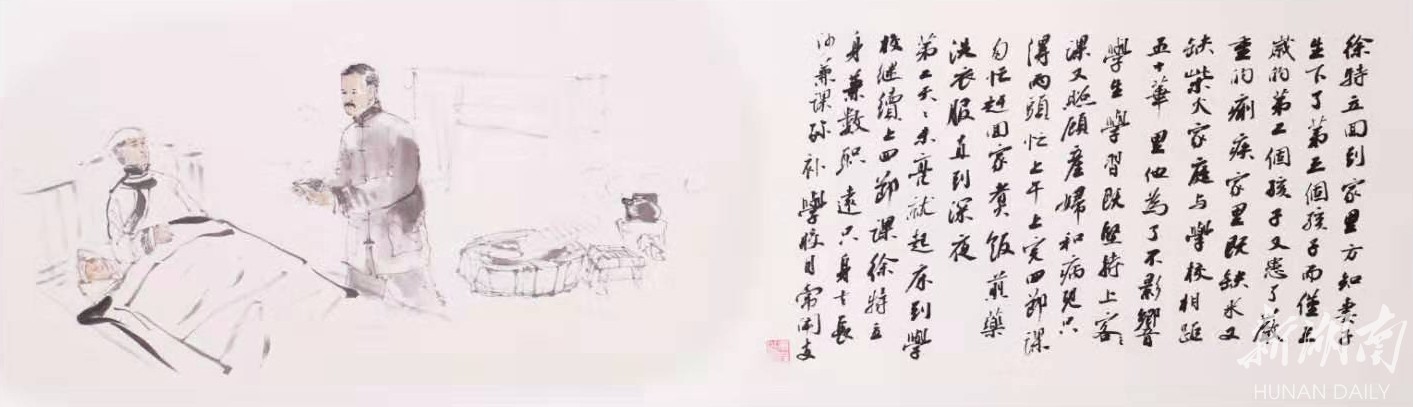 徐特立回到家里方知妻子
生下了第三個孩子而僅
歲的第二個孩子又患了嚴
重的痢疾家里既缺水又
缺柴火家庭與學校相距
五十華里他為了不影響
學生學習既堅持上
課又照顧產婦和病兒只
得两頭忙上午上完四節課
匆忙赶回家煮飯煎藥
洗衣服直到深夜
第二天〻未亮就起床到學
校继续上四節課徐特立
身兼数职遠只身去長
沙兼課弥补學校日常開支
新湖南
HUNAN DAILY